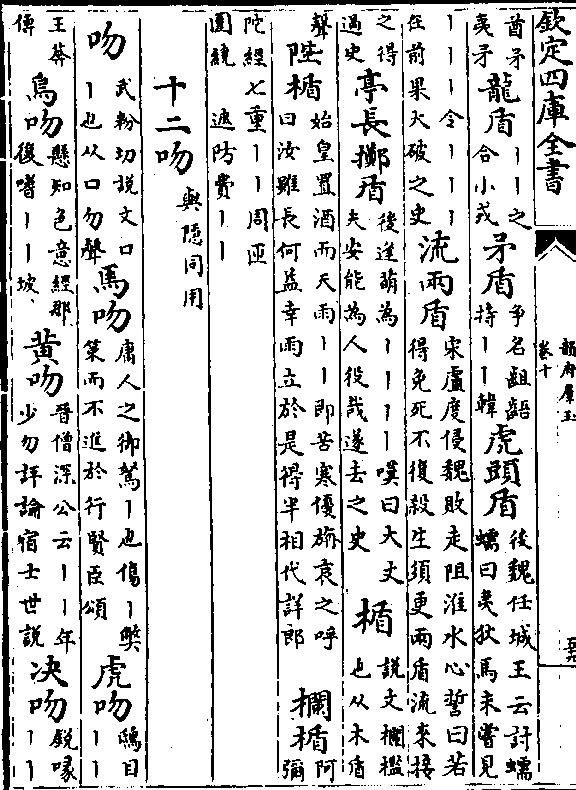 欽定四庫全書
韻府羣玉
卷十
酋矛夷矛 龍盾 丨丨之合小戎 矛盾 爭名齟齬持丨丨韓 虎頭盾 後魏任城王云討蠕蠕曰夷狄馬未嘗見
丨丨丨令丨丨丨在前果大破之史 流兩盾 宋盧度侵魏敗走阻淮水心誓曰若得免死不復殺生須更兩盾流來接
之得過史 亭長擲盾 後逢萌為丨丨丨丨嘆曰大丈夫安能為人役哉遂去之史 楯 說文欄檻也从木盾
聲 陛楯 始皇置酒而天雨丨丨即苦寒優旃哀之呼曰汝雖長何益幸雨立於是得半相代詳郎 欄楯 阿彌
陀經七重丨丨周匝圍繞 遮防費丨丨
十二吻 與隱同用
吻 武粉切說文口丨也从口勿聲 馬吻 庸人之御駑丨也傷丨獘策而不進於行賢臣頌 虎吻 鴟目丨丨
王莽傳 鳥吻 懸知色意經那復嗜丨丨坡 黃吻 晉僧深公云丨丨年少勿評論宿士世說 决吻 鋭喙丨丨